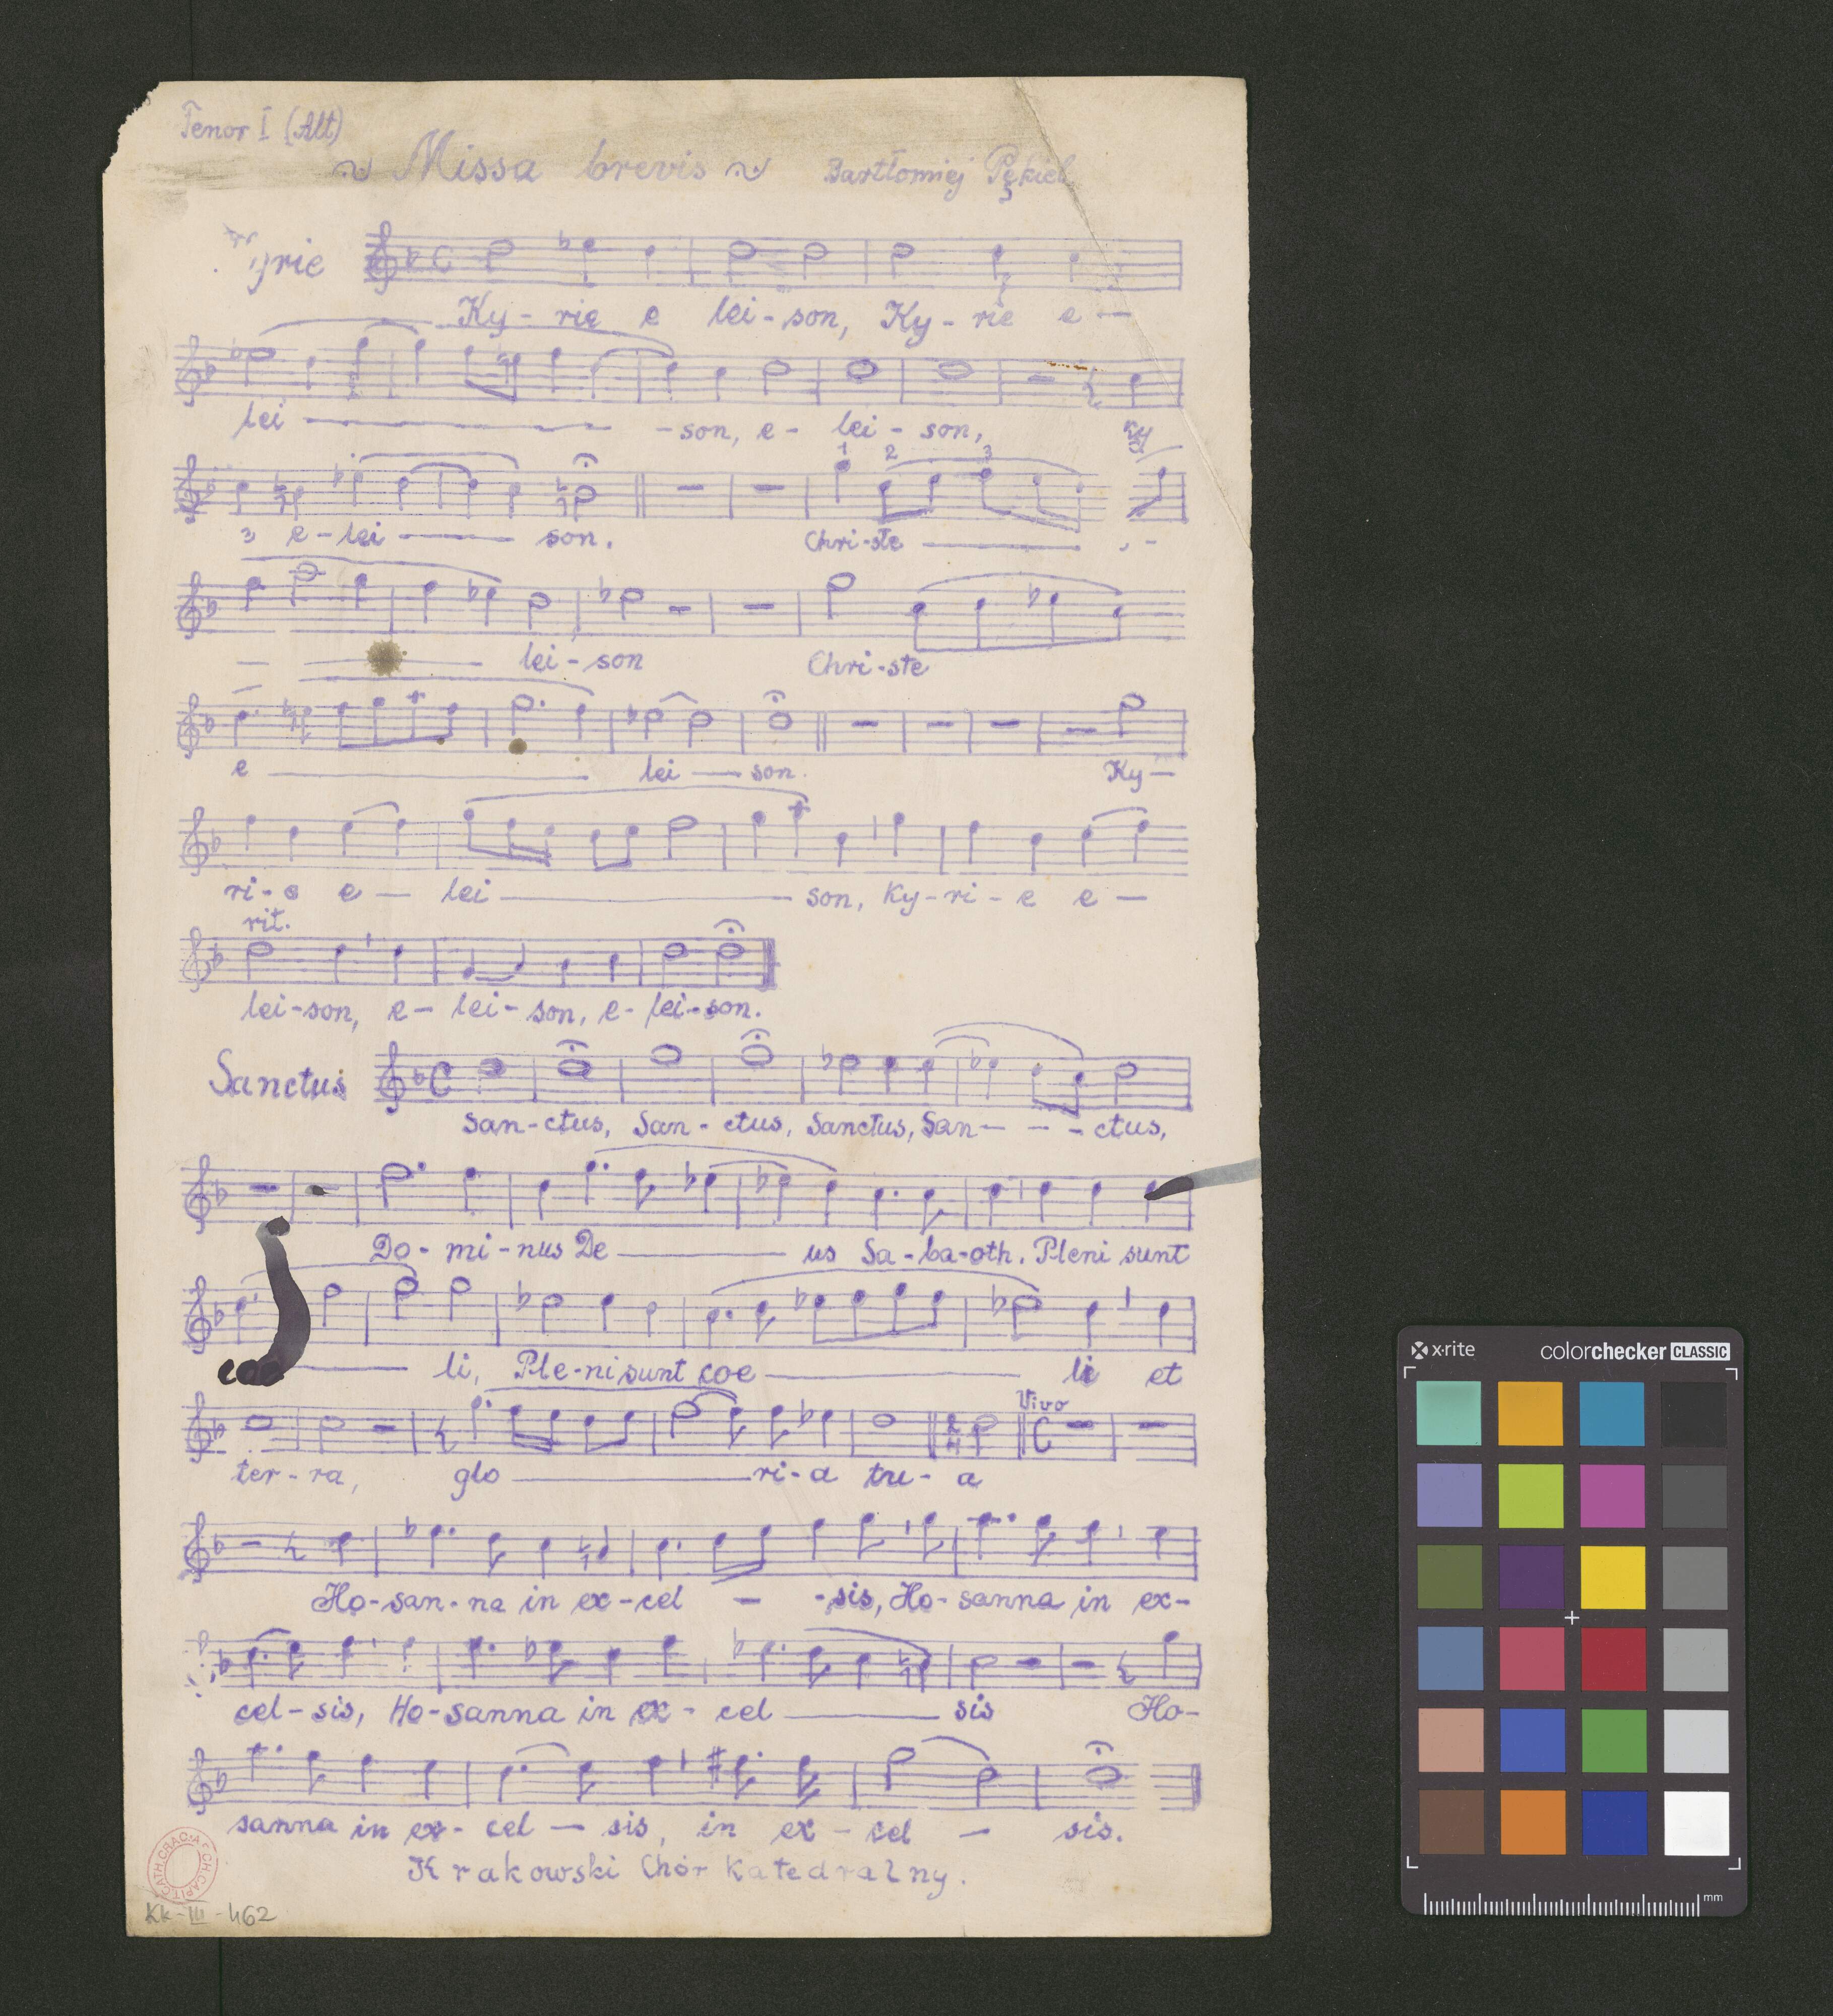 Tenor I (Alt)
~ Missa brevis ~ Bartłomiej Pękiel
yrie
Ky - rie e lei - son, Ky - rie e —
lei — - son, e - lei - son, Ky
1 2 3
e - lei — son. Chri - ste —
lei - son Chri - ste
e — lei — son. Ky —
ri - e e — lei — son, Ky - ri - e e —
rit.
lei - son, e - lei - son, e - lei - son.
Sanctus
San - ctus, San - ctus, Sanctus, San — - - ctus,
Do - mi - nus De — us Sa - ba - oth. Pleni sunt
coe — li, Ple - ni sunt coe — li et
Vivo
ter - ra, glo — ri - a tu - a
Ho - san - na in ex - cel — - sis, Ho - sanna in ex -
cel - sis, Ho - sanna in ex - cel — sis Ho -
sanna in ex - cel — sis, in ex - cel — sis.
Krakowski Chór Katedralny.
Kk - III - 462
x-rite colorchecker CLASSIC
mm